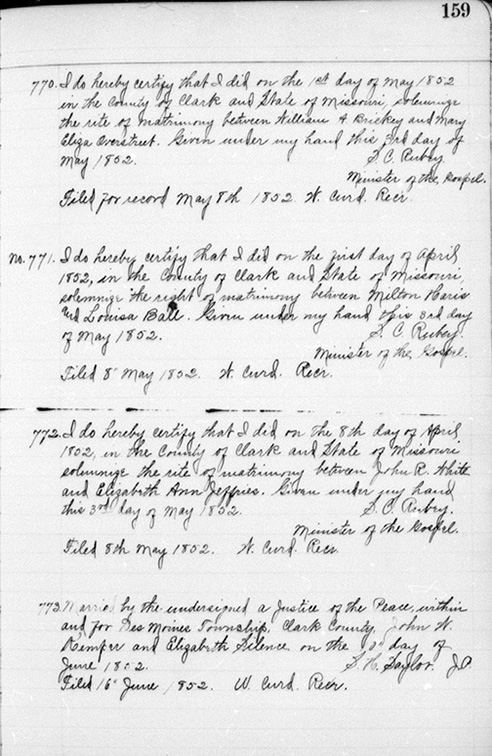 159
770. I do hereby certify that I did on the 1st day of May 1852
in the County of Clark and State of Missouri, solemnize
the rite of matrimony between William A Brickey and Mary
Eliza Overstreet. Given under my hand this 3rd day of
May 1852. S. C. Rubey
Minister of the Gospel.
Filed for record May 8th 1852. W. Curd. Recr.
No. 771. I do hereby certify that I did on the first day of April
1852, in the County of Clark and State of Missouri,
solemnize the right of matrimony between Milton Haris
and Louisa Ball. Given under my hand this 3rd day
of May 1852. S. C. Rubey.
Minister of the Gospel.
Filed 8" May 1852. W. Curd. Recr.
772. I do hereby certify that I did on the 8th day of April,
1852, in the County of Clark and State of Missouri
solemnize the rite of matrimony between John R. White
and Elizabeth Ann Jeffries. Given under my hand
this 3rd day of May 1852. S. C. Rubey.
Minister of the Gospel.
Filed 8th May 1852. W. Curd. Recr
773. Married by the undersigned a Justice of the Peace, within
and for Des Moines Township, Clark County, John W.
and Elizabeth on the day of
June 1852. S. H. Saylor J.P.
Filed 16" June 1852. W. Curd. Recr.